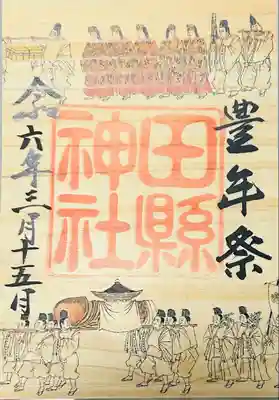 豊年祭
田縣
神社
令六年三月十五日